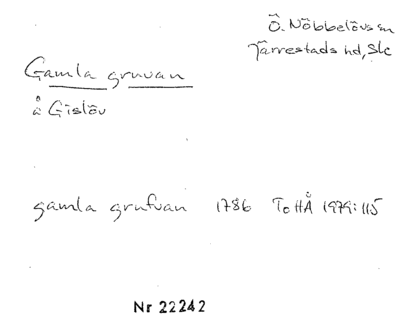 Ö. Nöbbelövs sn
Järrestads hd, Slc
Gamla gruvan
å Gislöv
gamla grufvan 1786 ToHÅ 1979:115
Nr 22242